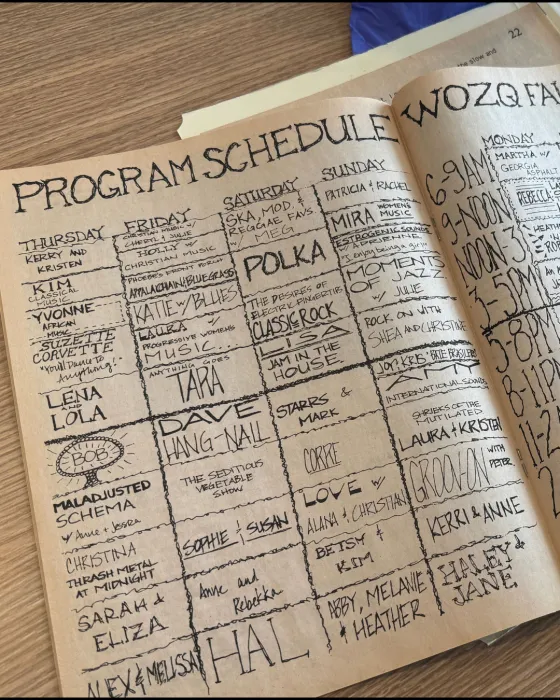 22
the slow and
PROGRAM SCHEDULE
WOZQ FA
THURSDAY
KERRY AND
KRISTEN
KIM
CLASSICAL
MUSIC
YVONNE
AFRICAN
MUSIC
SUZETTE
CORVETTE
"You'll Dance to
Anything!"
LENA
AND
LOLA
BOB
MALADJUSTED
SCHEMA
w/ Anne + Jessica
CHRISTINA
THRASH METAL
AT MIDNIGHT
SARAH &
ELIZA
ALEX & MELISSA
FRIDAY
CHRISTIAN MUSIC w/
CHERYL & JULIE
HOLLY w/
CHRISTIAN MUSIC
PHOEBE'S FRONT PORCH
APPALACHIAN/BLUEGRASS
KATIE w/ BLUES
LAURA w/
PROGRESSIVE WOMENS
MUSIC
ANYTHING GOES
TARA
DAVE
HANG-NAIL
THE SEDITIOUS
VEGETABLE
SHOW
SOPHIE & SUSAN
Anne and
Rebekka
HAL
SATURDAY
SKA, MOD, &
REGGAE FAVS
w/ MEG
POLKA
THE DESIRES OF
ELECTRIC FINGERTIPS
CLASSIC ROCK
LISA
JAM IN THE
HOUSE
STARRS &
MARK
CORRE
LOVE w/
ALANA & CHRISTIAN
BETSY &
KIM
ABBY, MELANIE
& HEATHER
SUNDAY
PATRICIA & RACHEL
MIRA WOMENS
MUSIC
ESTROGENIC SOUNDS
ADRIENNE
"I enjoy being a girl"
MOMENTS
OF JAZZ
w/ JULIE
ROCK ON WITH
SHEA AND CHRISTINE
AMY
INTERNATIONAL SOUNDS
SHRIEKS OF THE
MUTILATED
LAURA & KRISTEN
GROOV-ON WITH
PETER
KERRI & ANNE
HALEY &
JANE
MONDAY
6-9AM
MARTHA w/
GEORGIA
ASPHALT
9-NOON
REBECCA
NOON-3
HEATH
3-5PM
5-8PM
8-11
11-2
2